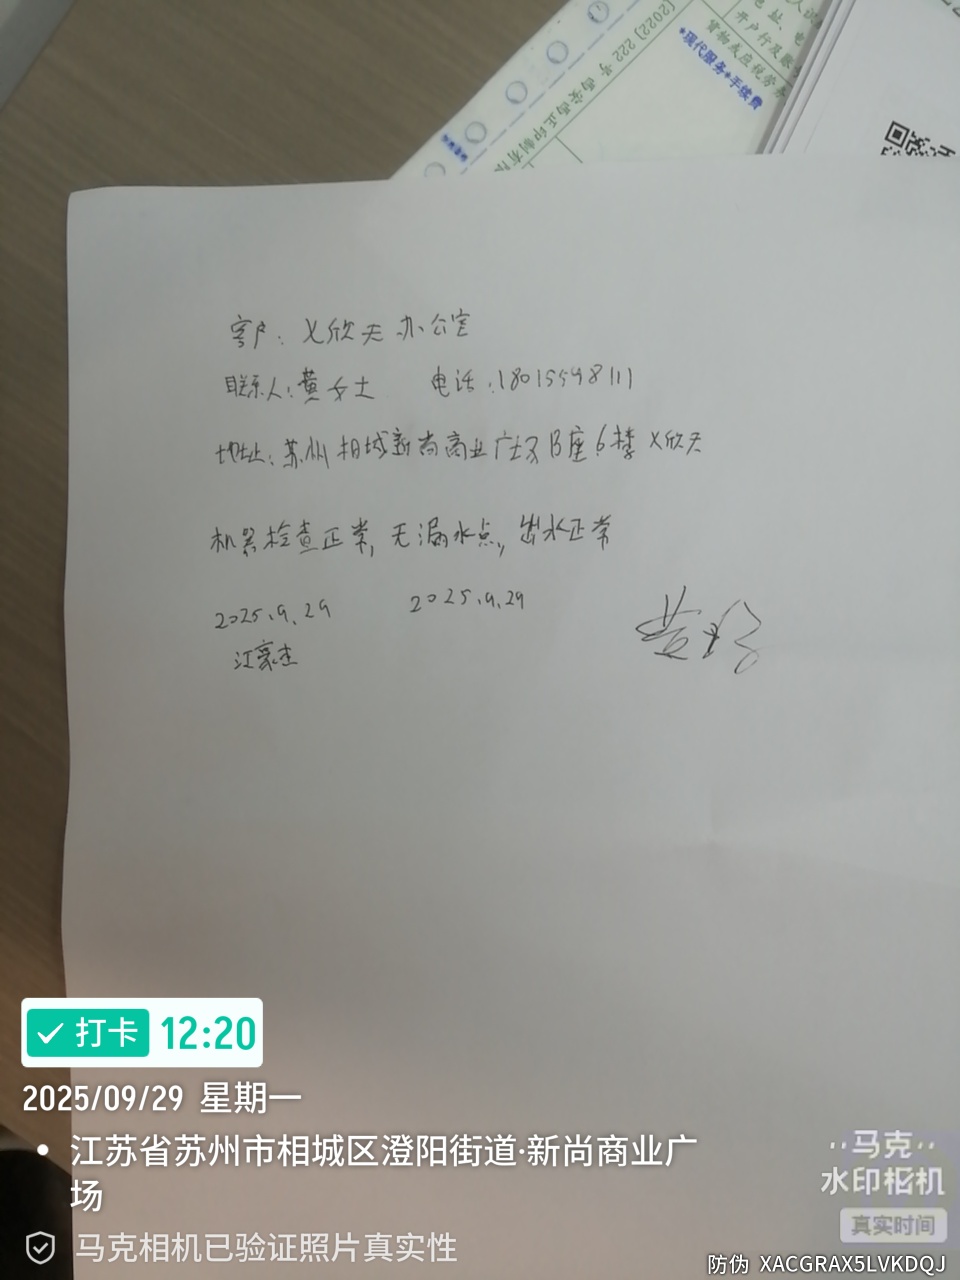 (2022) 222 号 西安西正印制有限
地址、电
开户行及账
货物或应税劳务
*现代服务*手续费
客户: 义欣天办公室
联系人: 黄女士 电话: 18015548111
地址: 苏州相城新尚商业广场B座6楼义欣天
机器检查正常, 无漏水点, 出水正常
2025.9.29 2025.9.29
江豪杰
打卡 12:20
2025/09/29 星期一
江苏省苏州市相城区澄阳街道·新尚商业广
场
马克相机已验证照片真实性
马克
水印相机
真实时间
防伪 XACGRAX5LVKDQJ